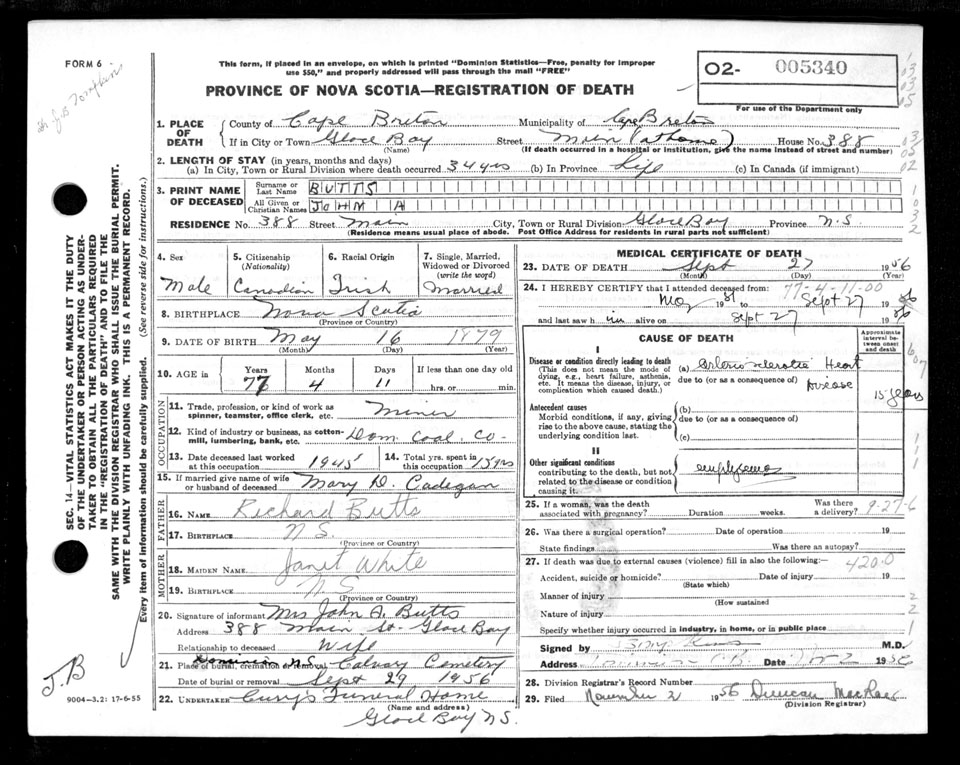 FORM 6
This form, if placed in an envelope, on which is printed "Dominion Statistics—Free, penalty for improper
use $50," and properly addressed will pass through the mail "FREE"
PROVINCE OF NOVA SCOTIA—REGISTRATION OF DEATH
02- 005340
For use of the Department only
1. PLACE OF DEATH
County of Cape Breton Municipality of Cape Breton
If in City or Town Glace Bay Street Main (at home) House No. 388
(Name) (If death occurred in a hospital or institution, give the name instead of street and number)
2. LENGTH OF STAY (in years, months and days)
(a) In City, Town or Rural Division where death occurred 34 yrs (b) In Province Life (c) In Canada (if immigrant)
3. PRINT NAME OF DECEASED
Surname or Last Name BUTTS
All Given or Christian Names JOHN A
RESIDENCE No. 388 Street Main City, Town or Rural Division Glace Bay Province N.S.
(Residence means usual place of abode. Post Office Address for residents in rural parts not sufficient)
4. Sex
Male
5. Citizenship
(Nationality)
Canadian
6. Racial Origin
Irish
7. Single, Married, Widowed or Divorced
(write the word)
Married
8. BIRTHPLACE Nova Scotia
(Province or Country)
9. DATE OF BIRTH May 16 1879
(Month) (Day) (Year)
10. AGE in
Years Months Days If less than one day old
77 4 11 hrs. or min.
OCCUPATION
11. Trade, profession, or kind of work as
spinner, teamster, office clerk, etc. Miner
12. Kind of industry or business, as cotton-
mill, lumbering, bank, etc. Dom. Coal. Co-
13. Date deceased last worked
at this occupation 1945
14. Total yrs. spent in
this occupation 15 yrs
15. If married give name of wife
or husband of deceased Mary D. Cadegan
FATHER
16. NAME Richard Butts
17. BIRTHPLACE N.S.
(Province or Country)
MOTHER
18. MAIDEN NAME Janet White
19. BIRTHPLACE N S
(Province or Country)
20. Signature of informant Mrs John A. Butts
Address 388 Main St- Glace Bay
Relationship to deceased Wife
21. Place of burial, cremation or removal Dominion N.S. Calvary Cemetery
Date of burial or removal Sept 29 1956
22. UNDERTAKER Curry's Funeral Home
(Name and address)
Glace Bay N S.
MEDICAL CERTIFICATE OF DEATH
23. DATE OF DEATH Sept 27 1956
(Month) (Day) (Year)
24. I HEREBY CERTIFY that I attended deceased from:
77-4-11-00
to Sept 27 1956
and last saw him alive on Sept 27 1956
CAUSE OF DEATH
Approximate interval between onset and death
I
Disease or condition directly leading to death
(This does not mean the mode of
dying, e.g., heart failure, asthenia,
etc. It means the disease, injury, or
complication which caused death.)
(a) Arteriosclerotic Heart
due to (or as a consequence of) Disease
15 years
Antecedent causes
Morbid conditions, if any, giving
rise to the above cause, stating the
underlying condition last.
(b)
due to (or as a consequence of)
(c)
II
Other significant conditions
contributing to the death, but not
related to the disease or condition
causing it.
emphysema
25. If a woman, was the death
associated with pregnancy? Duration weeks. Was there a delivery?
9-27-6
26. Was there a surgical operation? Date of operation 19
State findings Was there an autopsy?
27. If death was due to external causes (violence) fill in also the following:—
420.0
Accident, suicide or homicide? Date of injury 19
(State which)
Manner of injury
(How sustained)
Nature of injury
Specify whether injury occurred in industry, in home, or in public place
Signed by M.D.
Address Date Nov 2 1956
28. Division Registrar's Record Number
29. Filed November 2 1956 Duncan MacRae
(Division Registrar)
SEC. 14—VITAL STATISTICS ACT MAKES IT THE DUTY
OF THE UNDERTAKER OR PERSON ACTING AS UNDER-
TAKER TO OBTAIN ALL THE PARTICULARS REQUIRED
IN THE "REGISTRATION OF DEATH" AND TO FILE THE
SAME WITH THE DIVISION REGISTRAR WHO SHALL ISSUE THE BURIAL PERMIT.
WRITE PLAINLY WITH UNFADING INK. THIS IS A PERMANENT RECORD.
Every item of information should be carefully supplied. (See reverse side for instructions.)
J.B
9004—3.2: 17-6-55